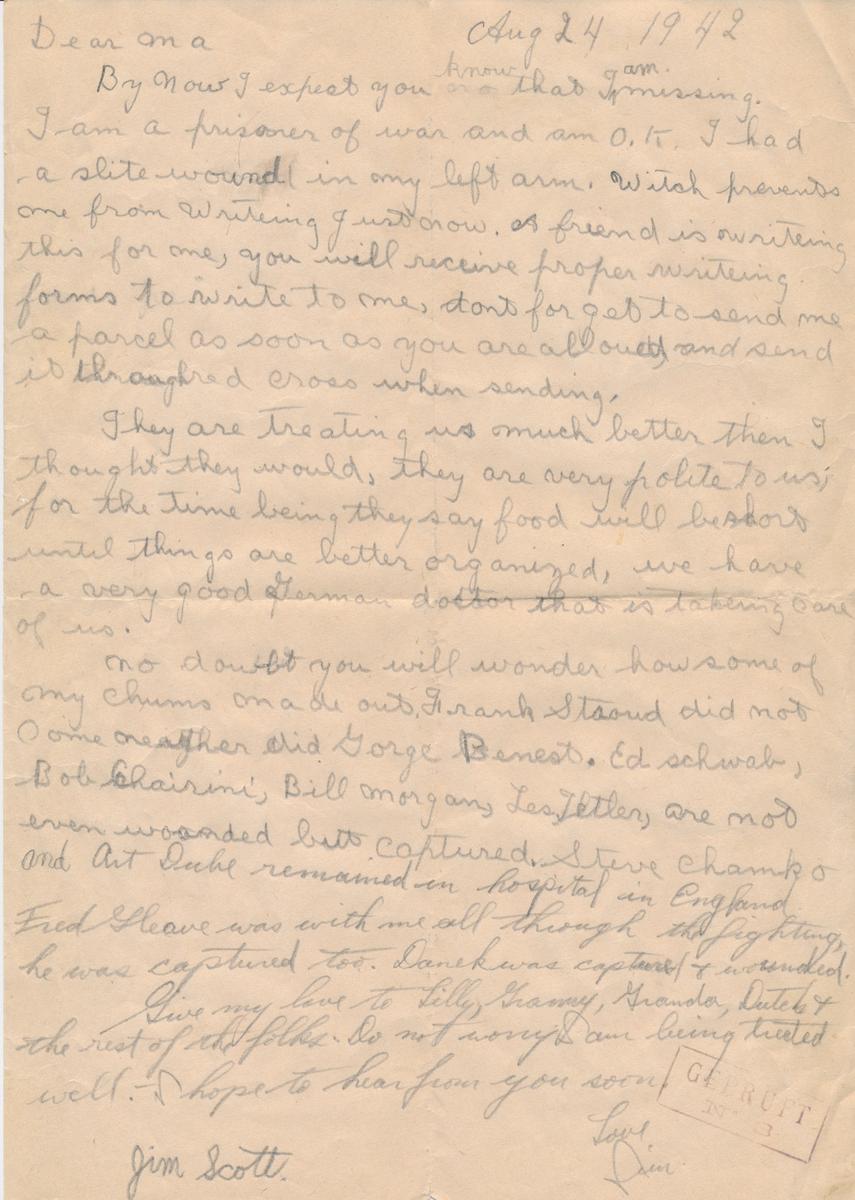 Aug 24 1942
Dear Ma
By Now I expect you know that I am missing.
I am a prisoner of war and am O.K. I had
a slite wound in my left arm. Witch prevents
me from Writeing Just now. A friend is writeing
this for me, you will receive proper writeing
forms to write to me, dont forget to send me
a parcel as soon as you are allowed, and send
it through red cross when sending.
They are treating us much better then I
thought they would, they are very polite to us,
for the time being they say food will be short
until things are better organized, we have
a very good German doctor that is takeing care
of us.
No doubt you will wonder how some of
my chums made out, Frank Stroud did not
Come neather did Gorge Benest. Ed schwab,
Bob Chairini, Bill Morgan, Les are not
even wounded but captured. Steve Chamko
and Art Dube remained in hospital in England.
Fred Gleave was with me all through the fighting,
he was captured too. Danek was captured & wounded.
Give my love to Lilly, Granny, Granda, Dutch &
the rest of the folks. Do not worry I am being treated
well. I hope to hear from you soon.
GEPRUFT
Nº 3
Love
Jim
Jim Scott.